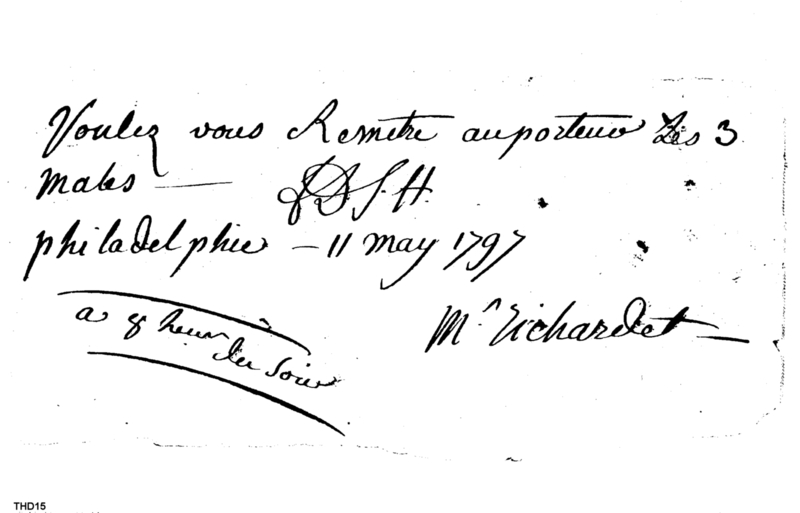 Voulez vous Remetre au porteur Les 3
males — J D S. H.
philadelphie — 11 may 1797
a 8 heur
du Soir
Mr Richardet —
THD15